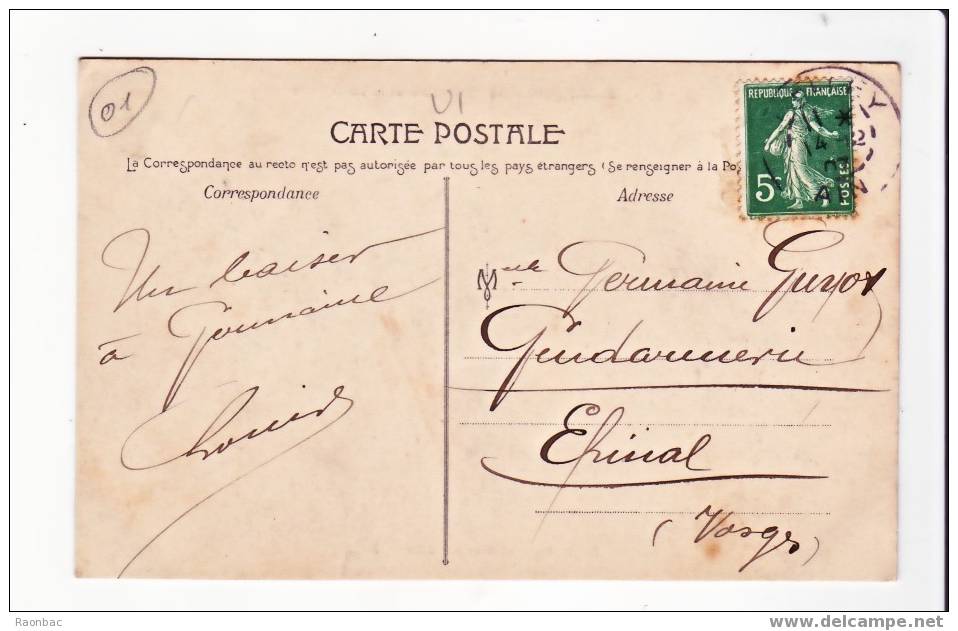 01
VI
CARTE POSTALE
La Correspondance au recto n'est pas autorisée par tous les pays étrangers (Se renseigner à la Po
Correspondance
Adresse
REPUBLIQUE FRANÇAISE
5c
POSTES
Un baiser
à Germaine
Louis
Melle Germaine Guyot
Gendarmerie
Epinal
(Vosges)
Raonbac
www.delcampe.net